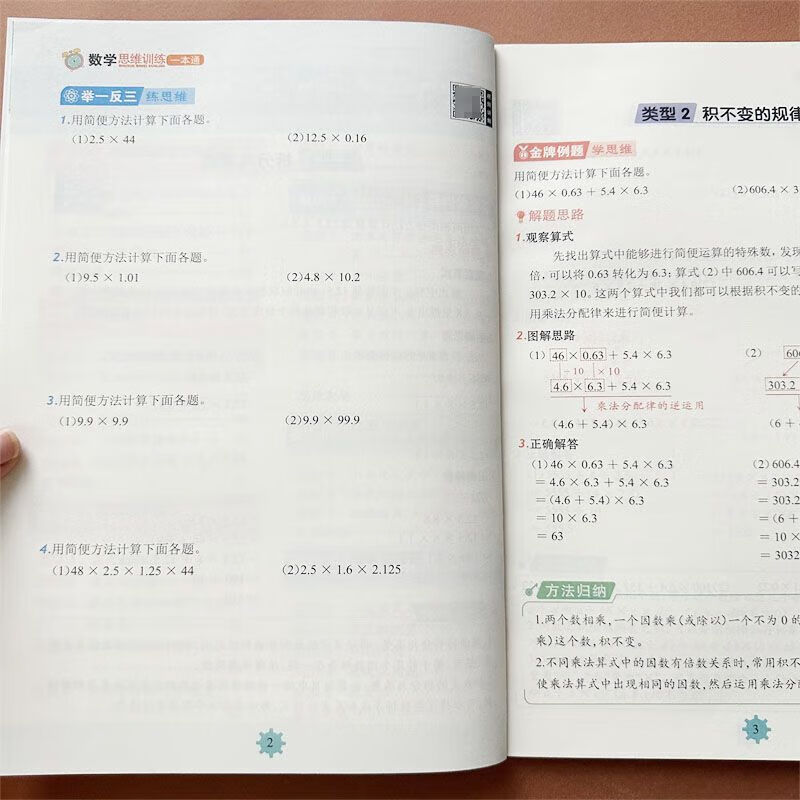 数学思维训练一本通
举一反三 练思维
1.用简便方法计算下面各题。
(1)2.5 × 44 (2)12.5 × 0.16
2.用简便方法计算下面各题。
(1)9.5 × 1.01 (2)4.8 × 10.2
3.用简便方法计算下面各题。
(1)9.9 × 9.9 (2)9.9 × 99.9
4.用简便方法计算下面各题。
(1)48 × 2.5 × 1.25 × 44 (2)2.5 × 1.6 × 2.125
2
类型 2 积不变的规律
金牌例题 学思维
用简便方法计算下面各题。
(1)46 × 0.63 + 5.4 × 6.3 (2)606.4 × 3
解题思路
1.观察算式
先找出算式中能够进行简便运算的特殊数，发现
倍，可以将 0.63 转化为 6.3；算式(2)中 606.4 可以写
303.2 × 10。这两个算式中我们都可以根据积不变的
用乘法分配律来进行简便计算。
2.图解思路
(1) 46 × 0.63 + 5.4 × 6.3 (2) 606
÷10 ×10
4.6 × 6.3 + 5.4 × 6.3 303.2
乘法分配律的逆运用
(4.6 + 5.4) × 6.3 (6 +
3.正确解答
(1)46 × 0.63 + 5.4 × 6.3 (2)606.4
= 4.6 × 6.3 + 5.4 × 6.3 = 303.2
= (4.6 + 5.4) × 6.3 = 303.2
= 10 × 6.3 = (6 +
= 63 = 10 ×
= 3032
方法归纳
1.两个数相乘，一个因数乘(或除以)一个不为 0 的
乘)这个数，积不变。
2.不同乘法算式中的因数有倍数关系时，常用积不
使乘法算式中出现相同的因数，然后运用乘法分配
3